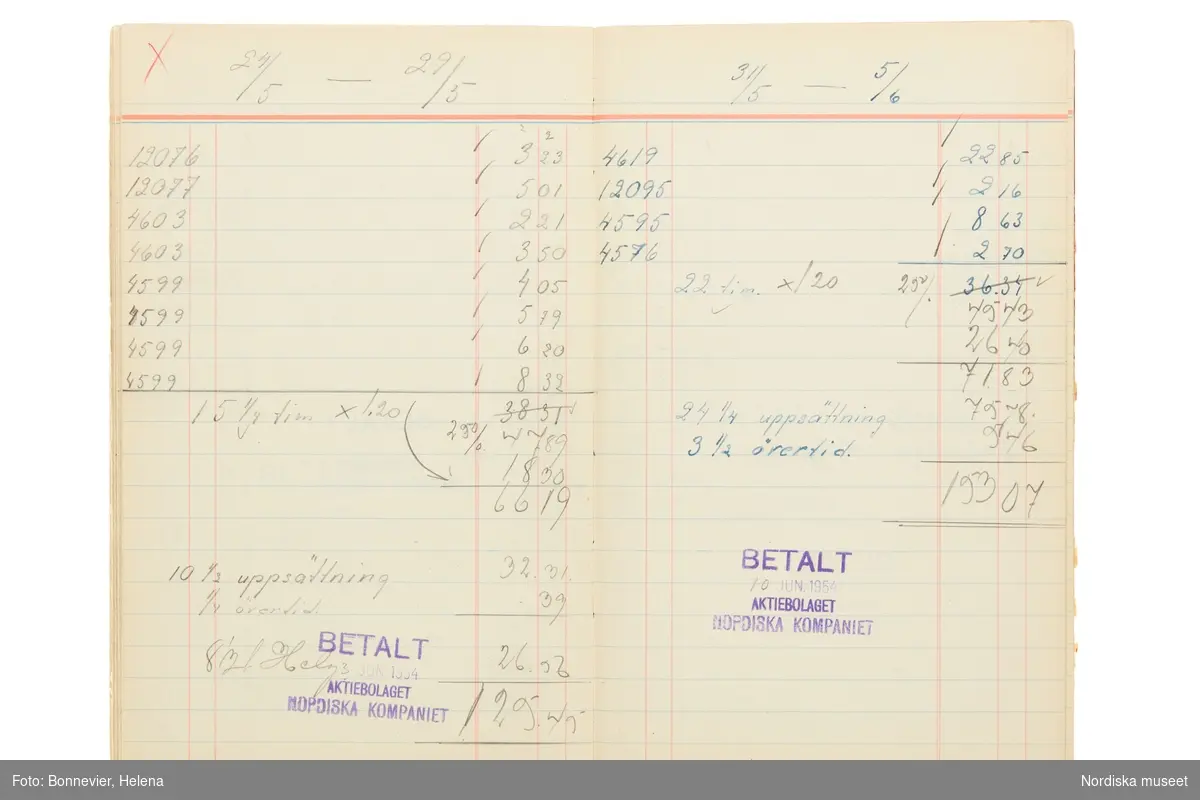 X
24/5 — 29/5
2 2
12076 3 23
12077 5 01
4603 2 21
4603 3 50
4599 4 05
4599 5 79
4599 6 20
4599 8 32
15 1/4 tim x 1,20 38 31
25% 47 89
18 30
66 19
10 1/2 uppsättning 32.31.
1/4 övertid. 39
8 1/2 t. Helg 26.56
125.45
BETALT
3 JUN. 1954
AKTIEBOLAGET
NORDISKA KOMPANIET
31/5 — 5/6
4619 22 85
12095 2 16
4595 8 63
4576 2 70
22 tim. x 1,20 25% 36.34
45 43
26 40
71 83
24 1/4 uppsättning 75 78.
3 1/2 övertid. 5 46
153 07
BETALT
10 JUN. 1954
AKTIEBOLAGET
NORDISKA KOMPANIET
Foto: Bonnevier, Helena
Nordiska museet